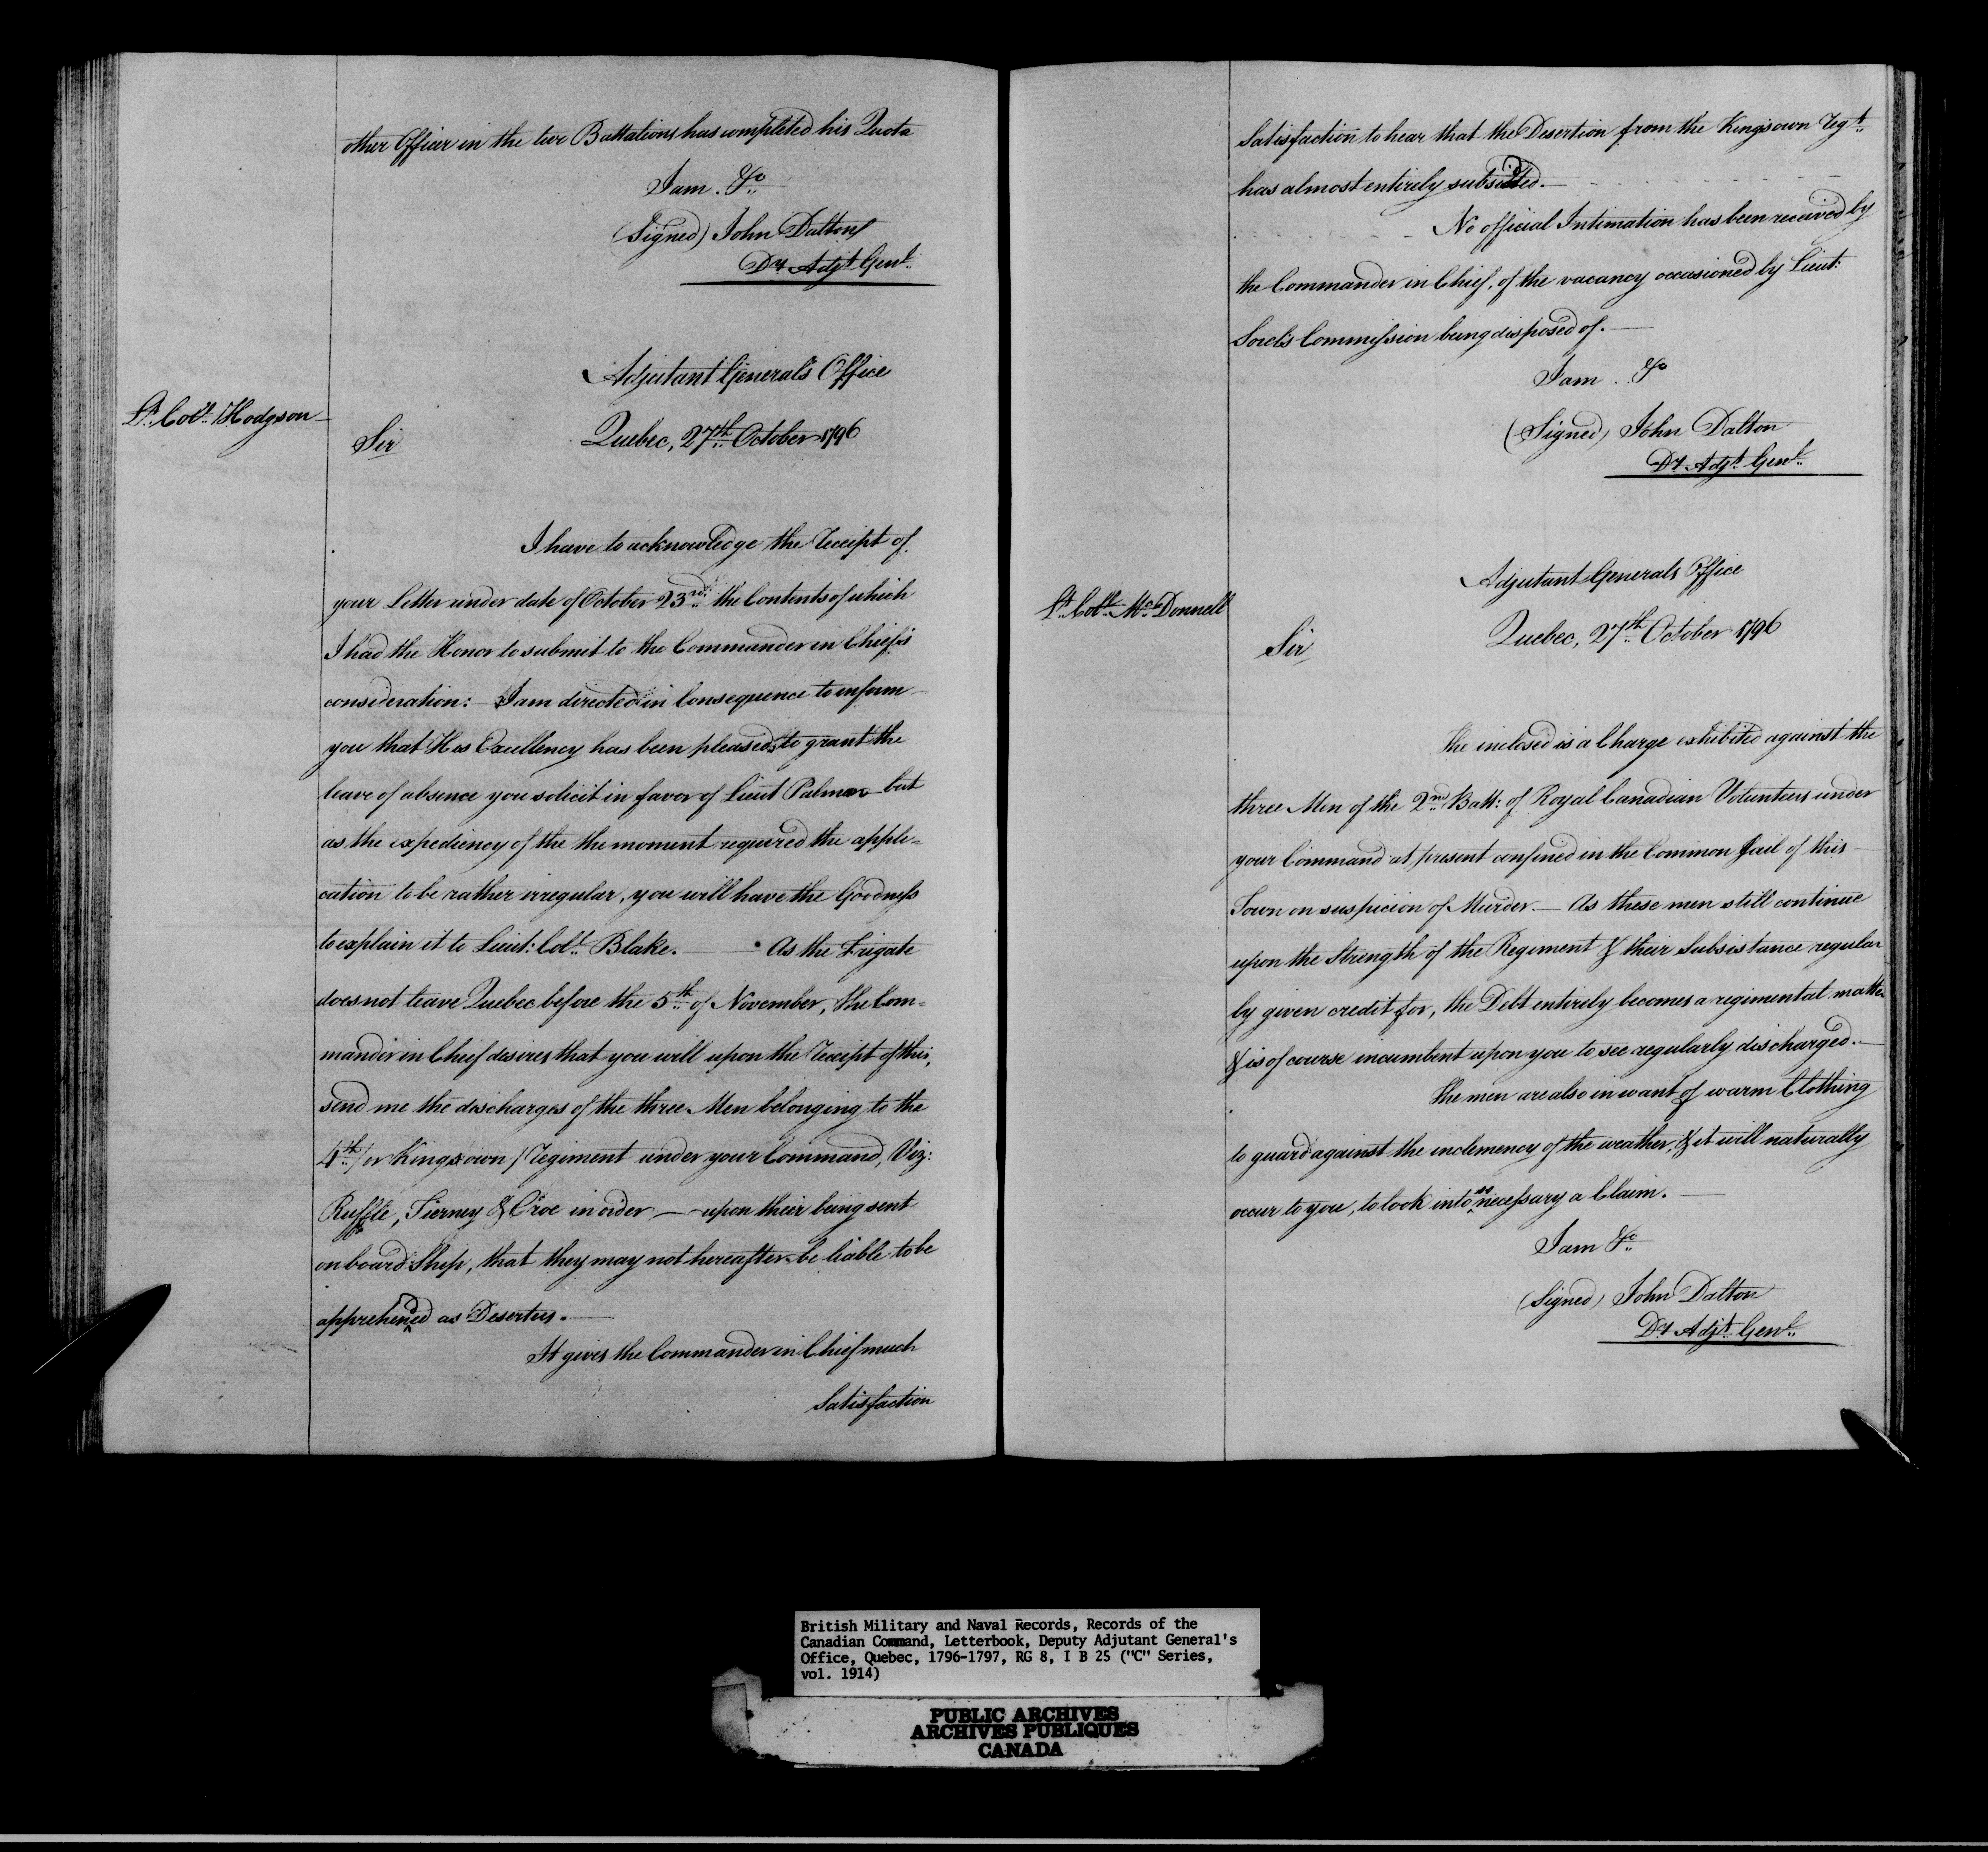 other Officer in the two Battalions has completed his Quota
I am. &c
(Signed) John Dalton
Dy. Adjt. Genl.
Adjutant General's Office
Lt. Coll. Hodgson
Sir
Quebec, 27th October 1796
I have to acknowledge the Receipt of
your Letter under date of October 23rd. the Contents of which
I had the Honor to submit to the Commander in Chief's
consideration: I am directed in Consequence to inform
you that His Excellency has been pleased to grant the
leave of absence you solicit in favor of Lieut Palmer but
as the expediency of the the moment required the appli=
cation to be rather irregular, you will have the Goodness
to explain it to Lieut: Coll. Blake. — As the Frigate
does not leave Quebec before the 5th of November, the Com=
mander in Chief desires that you will upon the Receipt of this,
send me the discharges of the three Men belonging to the
4th / or Kings own / Regiment under your Command, Viz:
Ruffle, Tierney & Croe in order — upon their being sent
on board Ship, that they may not hereafter be liable to be
apprehended as Deserters. —
It gives the Commander in Chief much
Satisfaction
Satisfaction to hear that the Desertion from the Kings own Regt.
has almost entirely subsided. —
No official Intimation has been received by
the Commander in Chief, of the vacancy occasioned by Lieut:
Commission being disposed of. —
I am . &c
(Signed) John Dalton
Dy. Adjt. Genl.
Adjutant Generals Office
Lt. Coll. Mc.Donnell
Quebec, 27th October 1796
Sir
The inclosed is a Charge exhibited against the
three Men of the 2nd Batt: of Royal Canadian Volunteers under
your Command at present confined in the Common Jail of this
Town on suspicion of Murder. — As these men still continue
upon the Strength of the Regiment & their Subsistance regular
ly given credit for, the Debt entirely becomes a regimental matter
& is of course incumbent upon you to see regularly discharged. —
The men are also in want of warm Clothing
to guard against the inclemency of the weather, & it will naturally
occur to you, to look into so necessary a Claim. —
I am &c
(Signed) John Dalton
Dy. Adjt. Genl.
British Military and Naval Records, Records of the
Canadian Command, Letterbook, Deputy Adjutant General's
Office, Quebec, 1796-1797, RG 8, I B 25 ("C" Series,
vol. 1914)
PUBLIC ARCHIVES
ARCHIVES PUBLIQUES
CANADA